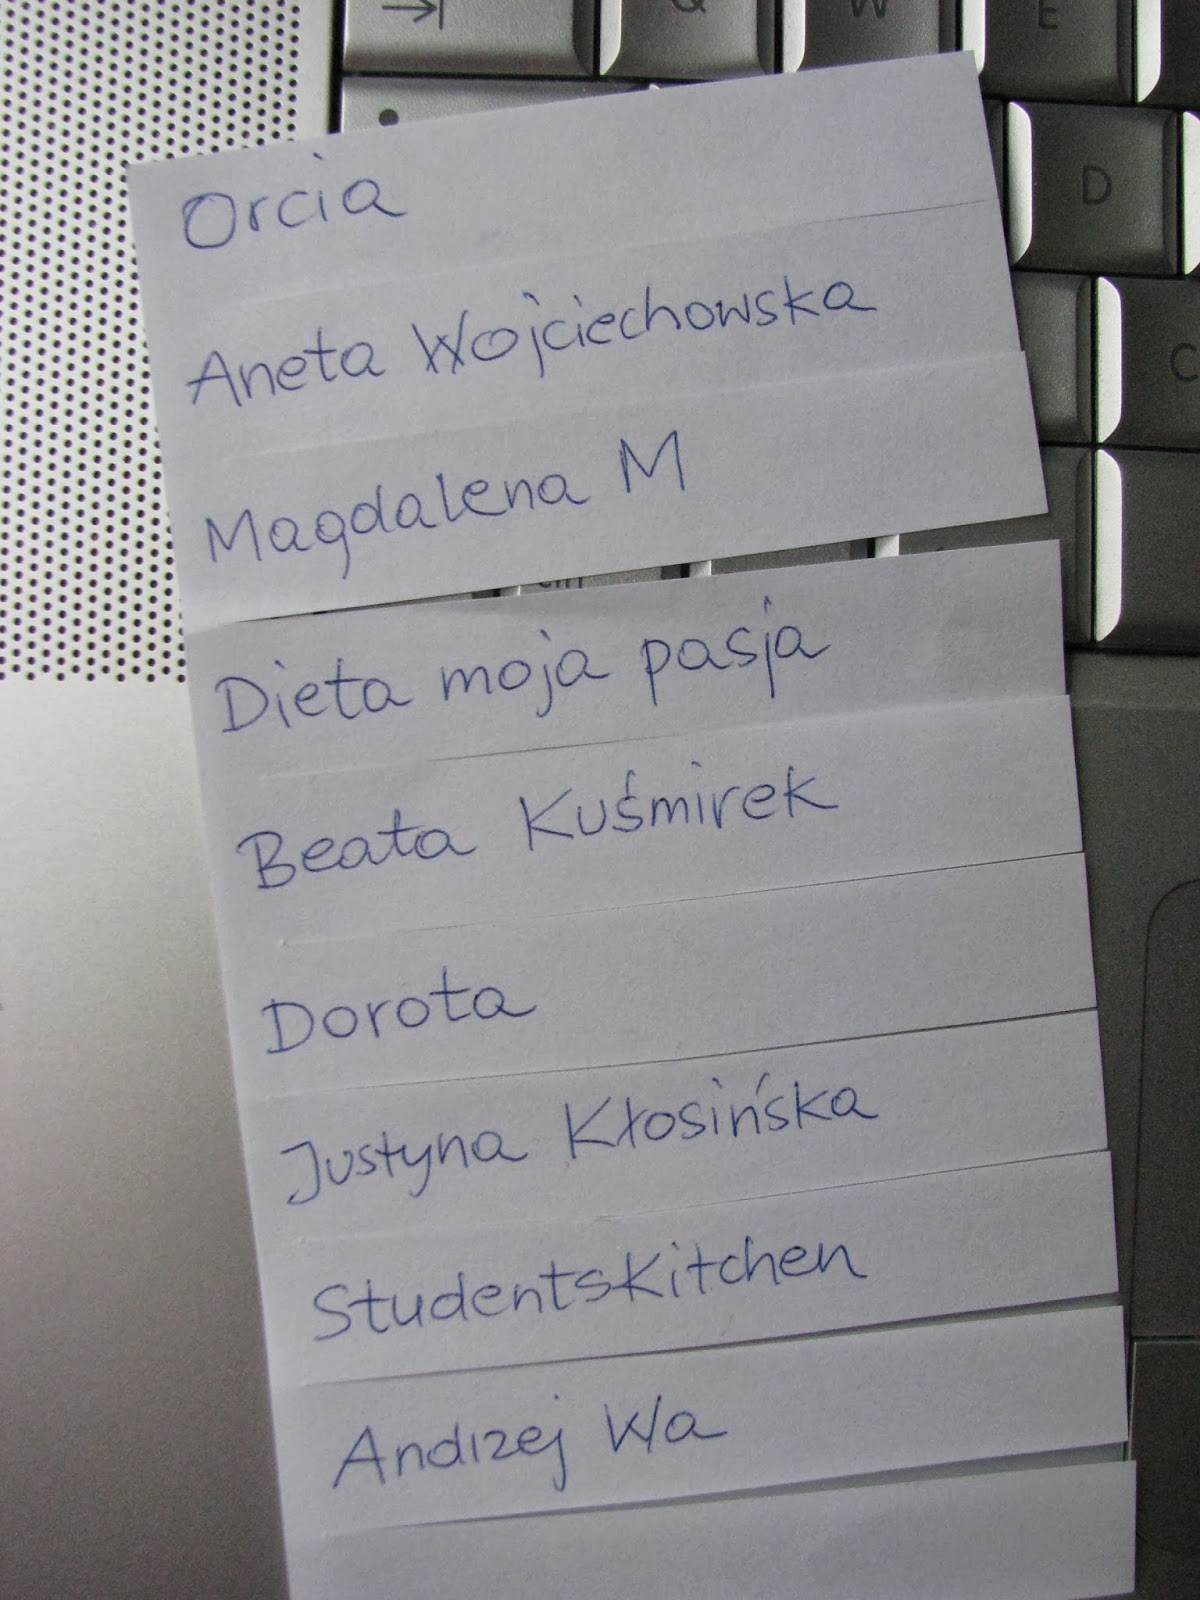 Q W E
D
C
Orcia
Aneta Wojciechowska
Magdalena M
Dieta moja pasja
Beata Kuśmirek
Dorota
Justyna Kłosińska
Studentskitchen
Andrzej Wa